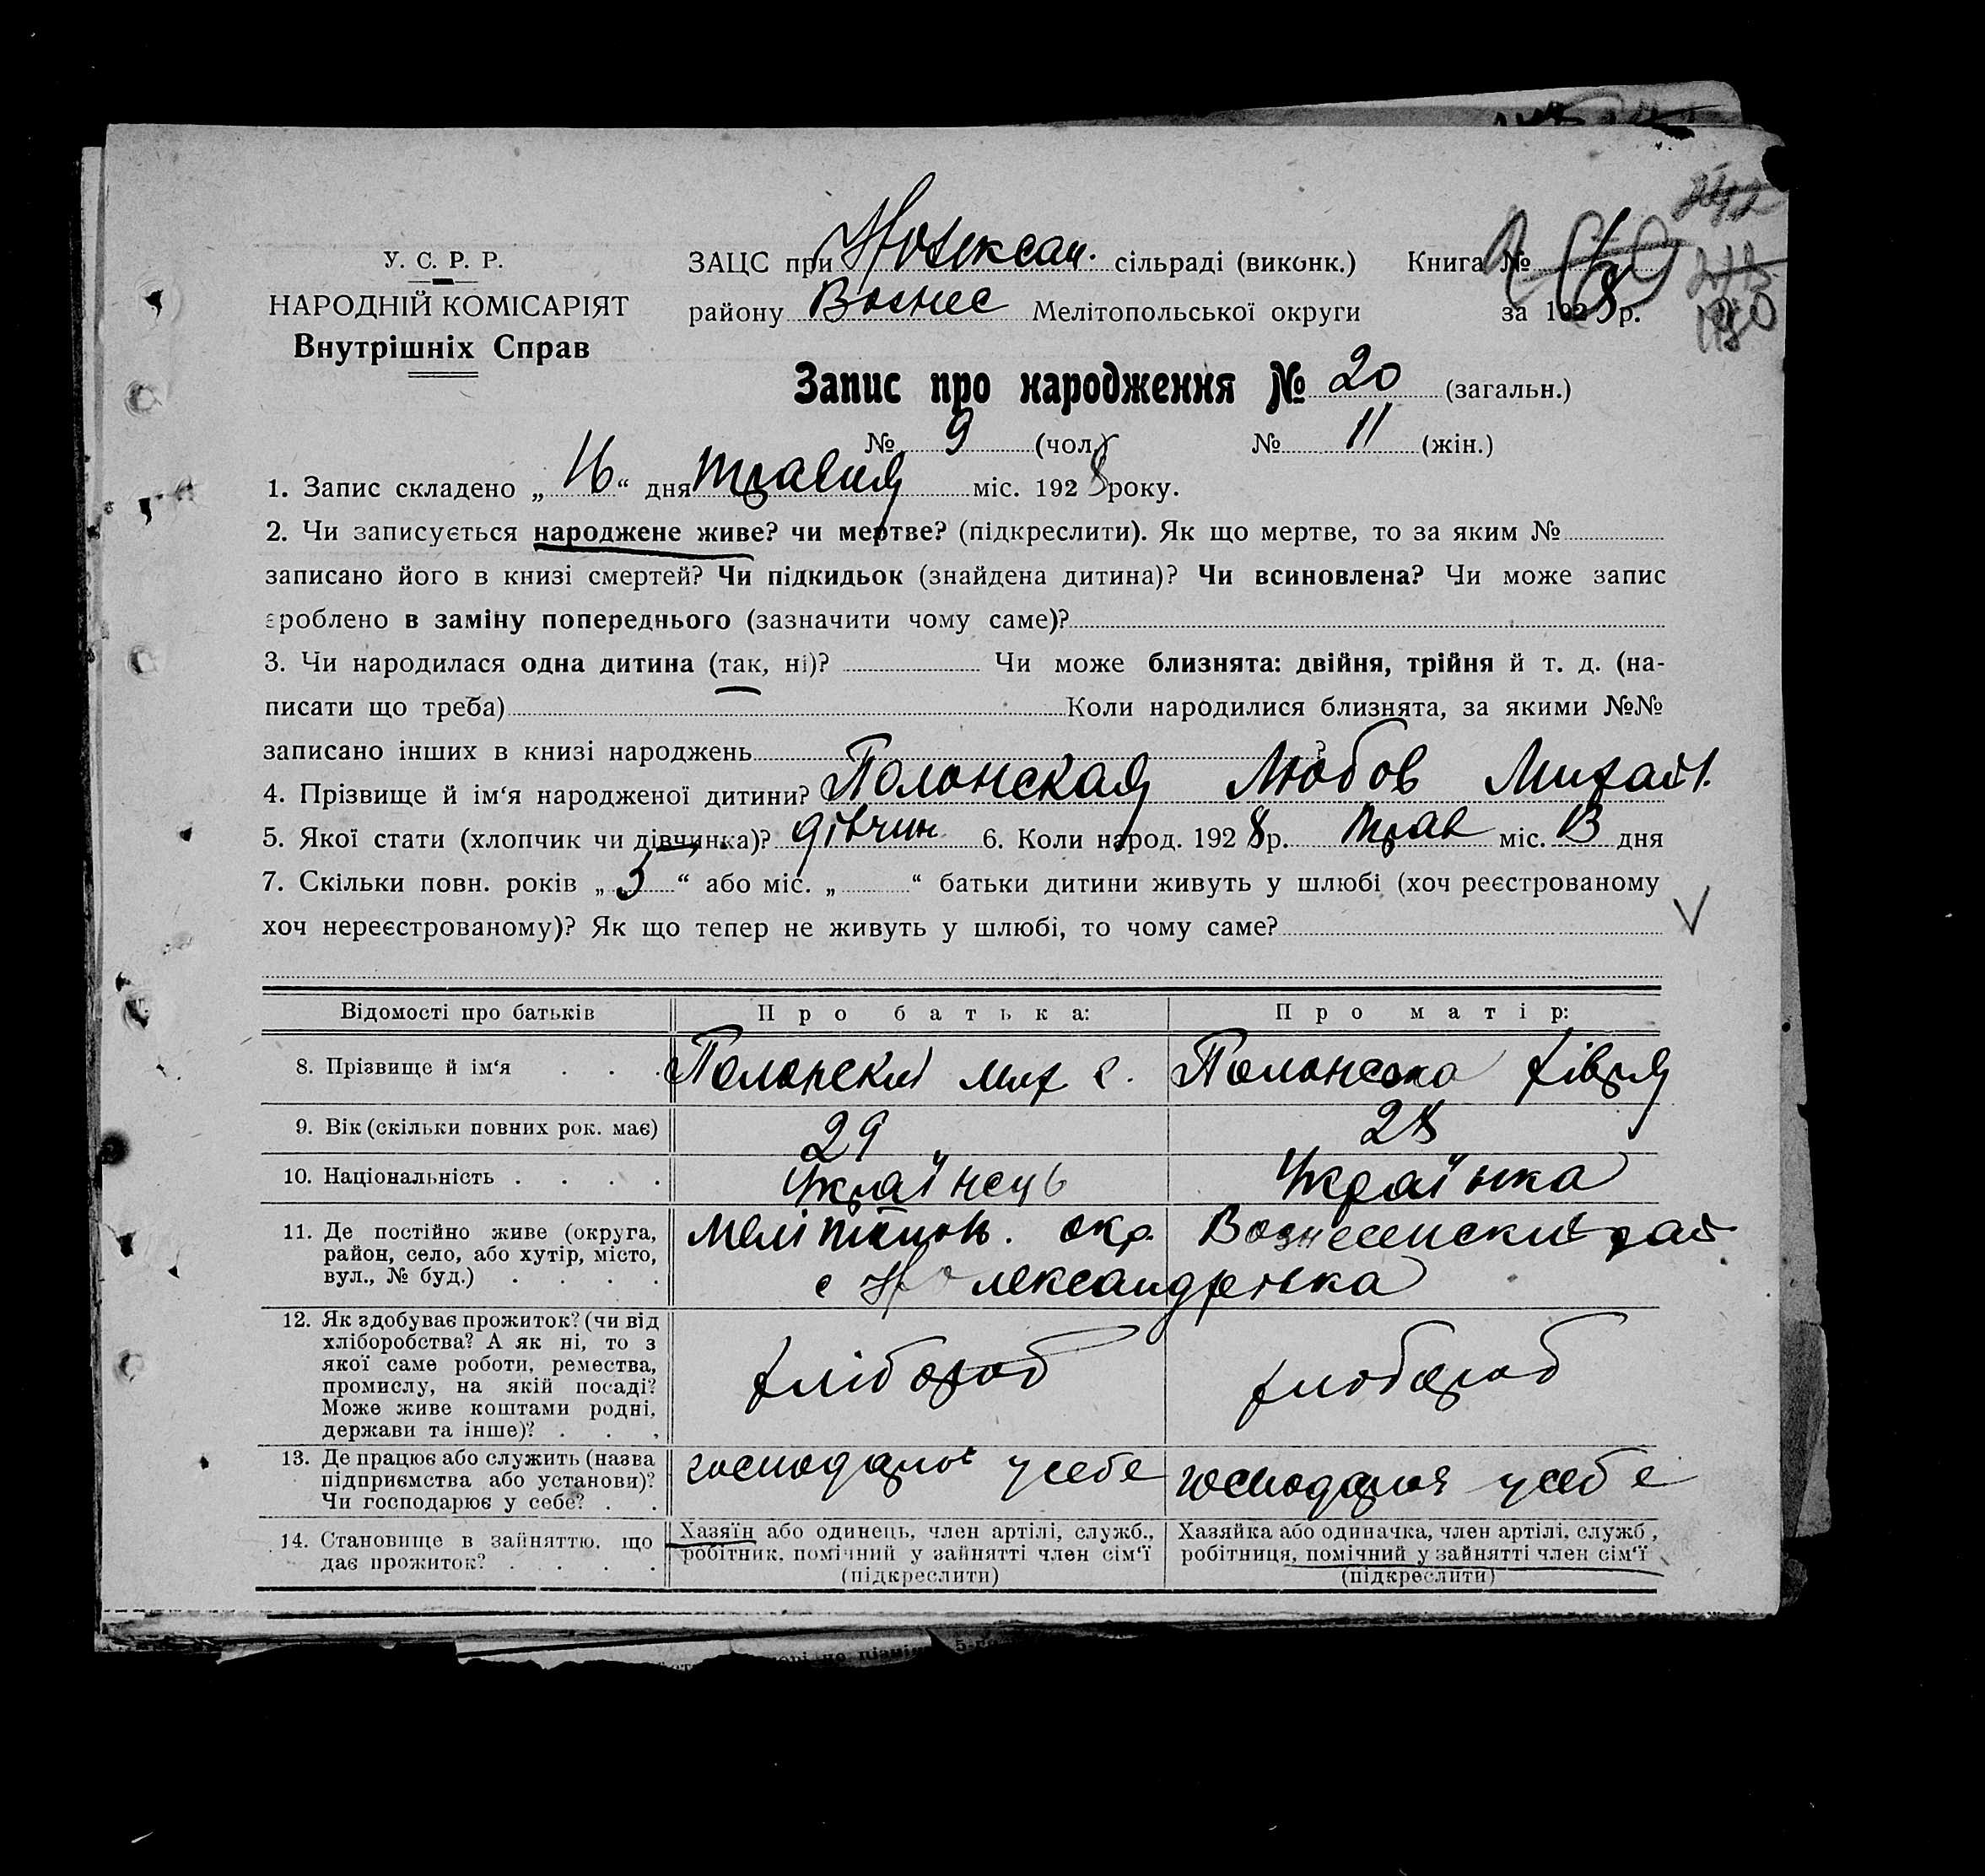 У. С. Р. Р.
НАРОДНІЙ КОМІСАРІЯТ
Внутрішніх Справ
ЗАЦС при Н Олексан. сільраді (виконк.) Книга №
району Вознес Мелітопольської округи за 1928 р.
Запис про народження № 20 (загальн.)
№ 9 (чол.) № 11 (жін.)
1. Запис складено „ 16 “ дня травня міс. 1928 року.
2. Чи записується народжене живе? чи мертве? (підкреслити). Як що мертве, то за яким №
записано його в книзі смертей? Чи підкидьок (знайдена дитина)? Чи всиновлена? Чи може запис
зроблено в заміну попереднього (зазначити чому саме)?
3. Чи народилася одна дитина (так, ні)? Чи може близнята: двійня, трійня й т. д. (на-
писати що треба) Коли народилися близнята, за якими №№
записано інших в книзі народжень ?
4. Прізвище й ім‘я народженої дитини? Полонская Любов Михайл.
5. Якої стати (хлопчик чи дівчинка)? дівчин 6. Коли народ. 1928 р. трав міс. 13 дня
7. Скільки повн. років „ 5 “ або міс. „ “ батьки дитини живуть у шлюбі (хоч реєстрованому
хоч нереєстрованому)? Як що тепер не живуть у шлюбі, то чому саме?
Відомості про батьків Про батька: Про матір:
8. Прізвище й ім‘я Полонский Мих С. Полонська Хівря
9. Вік (скільки повних рок. має) 29 28
10. Національність Українець Українка
11. Де постійно живе (округа, район, село, або хутір, місто, вул., № буд.) Мелітопол. окр. Вознесенский рай
с Н Олександрівка
12. Як здобуває прожиток? (чи від хліборобства? А як ні, то з якої саме роботи, ремества, промислу, на якій посаді? Може живе коштами родні, держави та інше)? хлібороб хлібороб
13. Де працює або служить (назва підприємства або установи)? Чи господарює у себе? господарює у себе господарює у себе
14. Становище в зайняттю, що дає прожиток? Хазяїн або одинець, член артілі, служб., робітник, помічний у зайнятті член сім‘ї (підкреслити) Хазяйка або одиначка, член артілі, служб, робітниця, помічний у зайнятті член сім‘ї (підкреслити)